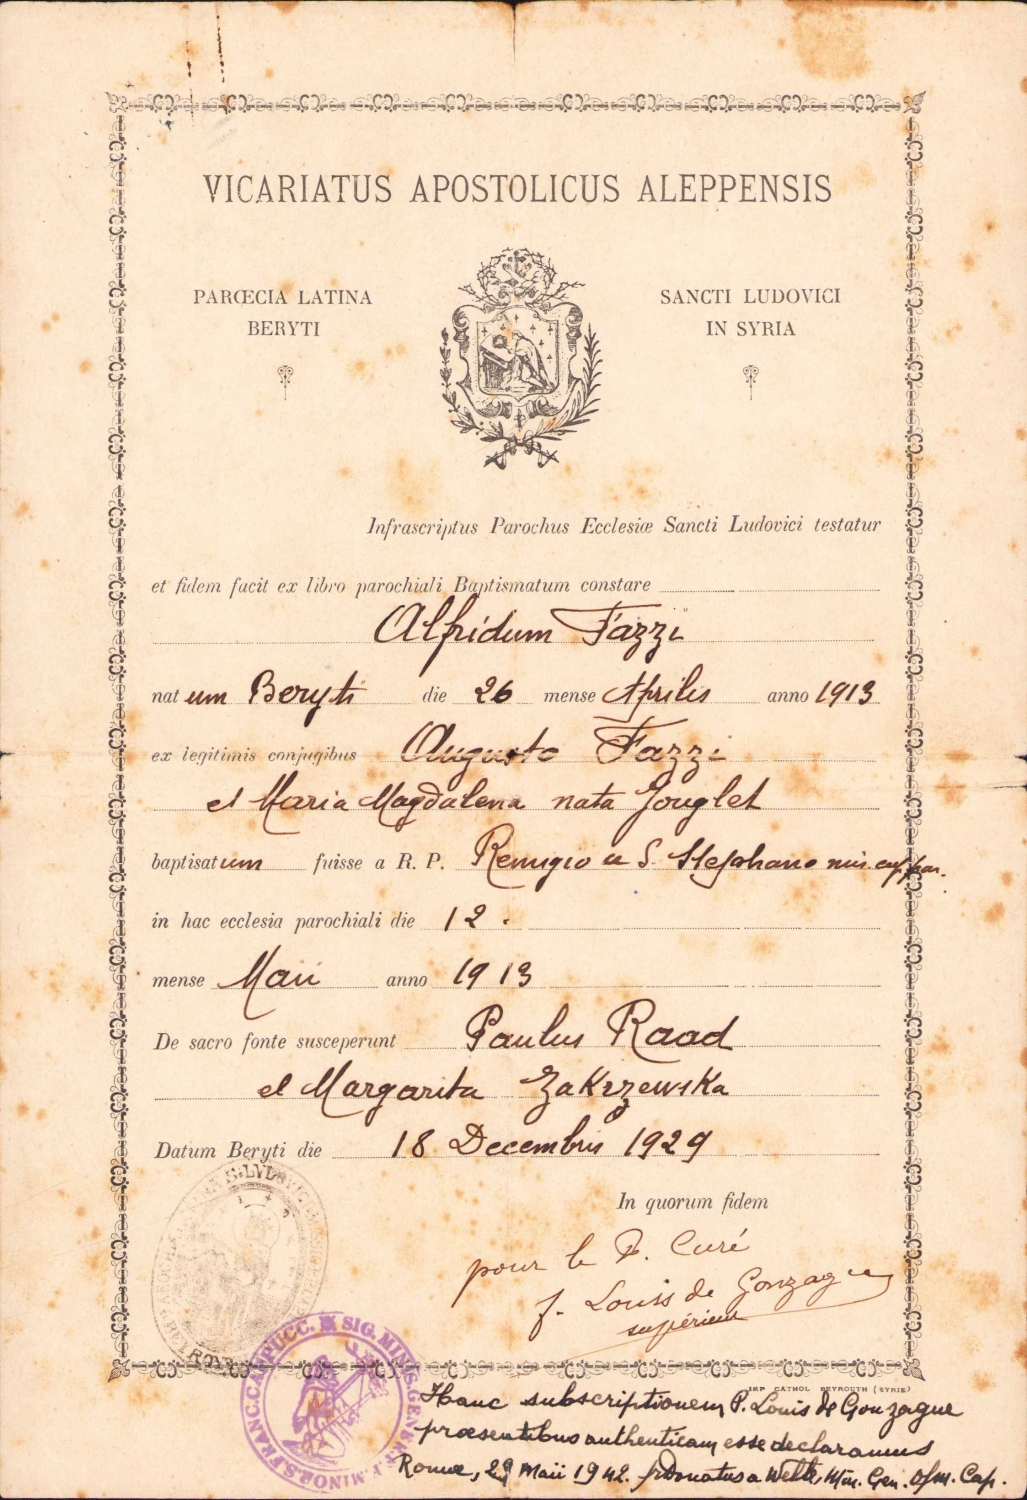 VICARIATUS APOSTOLICUS ALEPPENSIS
PARŒCIA LATINA
BERYTI
SANCTI LUDOVICI
IN SYRIA
Infrascriptus Parochus Ecclesiæ Sancti Ludovici testatur
et fidem facit ex libro parochiali Baptismatum constare
Alfridum Fazzi
natum Beryti die 26 mense Aprilis anno 1913
ex legitimis conjugibus Augusto Fazzi
et Maria Magdalena nata Gouglet
baptisatum fuisse a R. P. Remigio a S. Stephano mis. cap.
in hac ecclesia parochiali die 12.
mense Maii anno 1913
De sacro fonte susceperunt Paulus Raad
et Margarita Zakrzewska
Datum Beryti die 18 Decembris 1929
In quorum fidem
pour le P. Curé
f. Louis de Gonzague
supérieur
IMP CATHOL BEYROUTH (SYRIE)
Hanc subscriptionem P. Louis de Gonzague
præsentibus authenticam esse declaramus
Romæ, 29 Maii 1942. fr Donatus a Welle, Min. Gen. Ofm. Cap.
SIG. MINIS. GENER. MINOR. S. FRANC. CAPUCC.